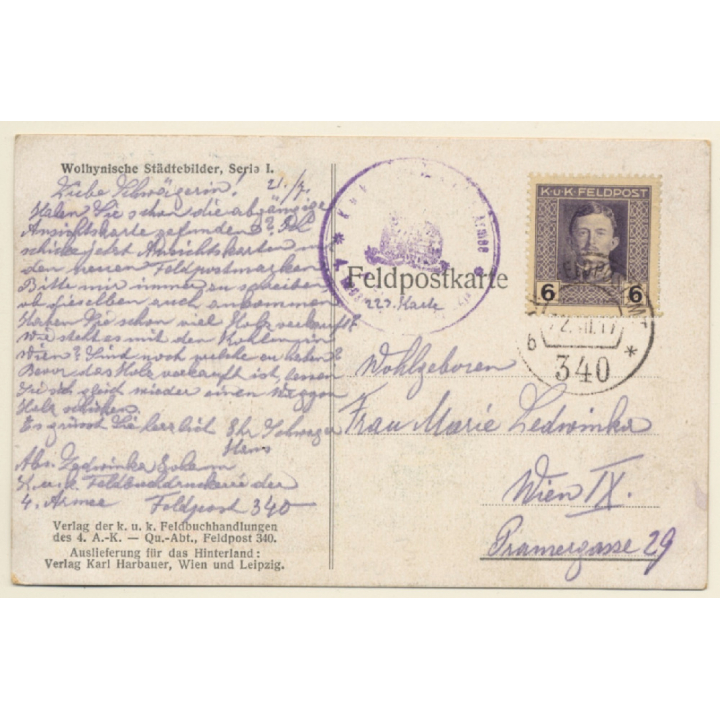 Wolhynische Städtebilder, Serie I.
21./7.
Liebe Schwägerin!
Haben Sie schon die abgängige
Ansichtskarte gefunden? Ich
schicke jetzt Ansichtskarten m
den neuen Feldpostmarken
Bitte mir immer zu schreiben
ob dieselben auch ankommen
Haben Sie schon viel Holz verkauft?
Wie steht es mit den Kohlen in
Wien? Sind noch welche zu haben?
Bevor das Holz verkauft ist, lassen
Sie sich gleich wieder einen Waggon
Holz schicken.
Es grüsst Sie herzlich Ihr Schwager
Hans
Abs. Ledwinka Johann
K. u. k. Feldbuchdruckerei der
4. Armee Feldpost 340
Verlag der k. u. k. Feldbuchhandlungen
des 4. A.-K. — Qu.-Abt., Feldpost 340.
Auslieferung für das Hinterland:
Verlag Karl Harbauer, Wien und Leipzig.
Armee
Feldpostkarte
227. Karte
K.U.K. FELDPOST
6 6
b 340 *
Wohlgeboren
Frau Marie Ledwinka
Wien IX.
Pramergasse 29